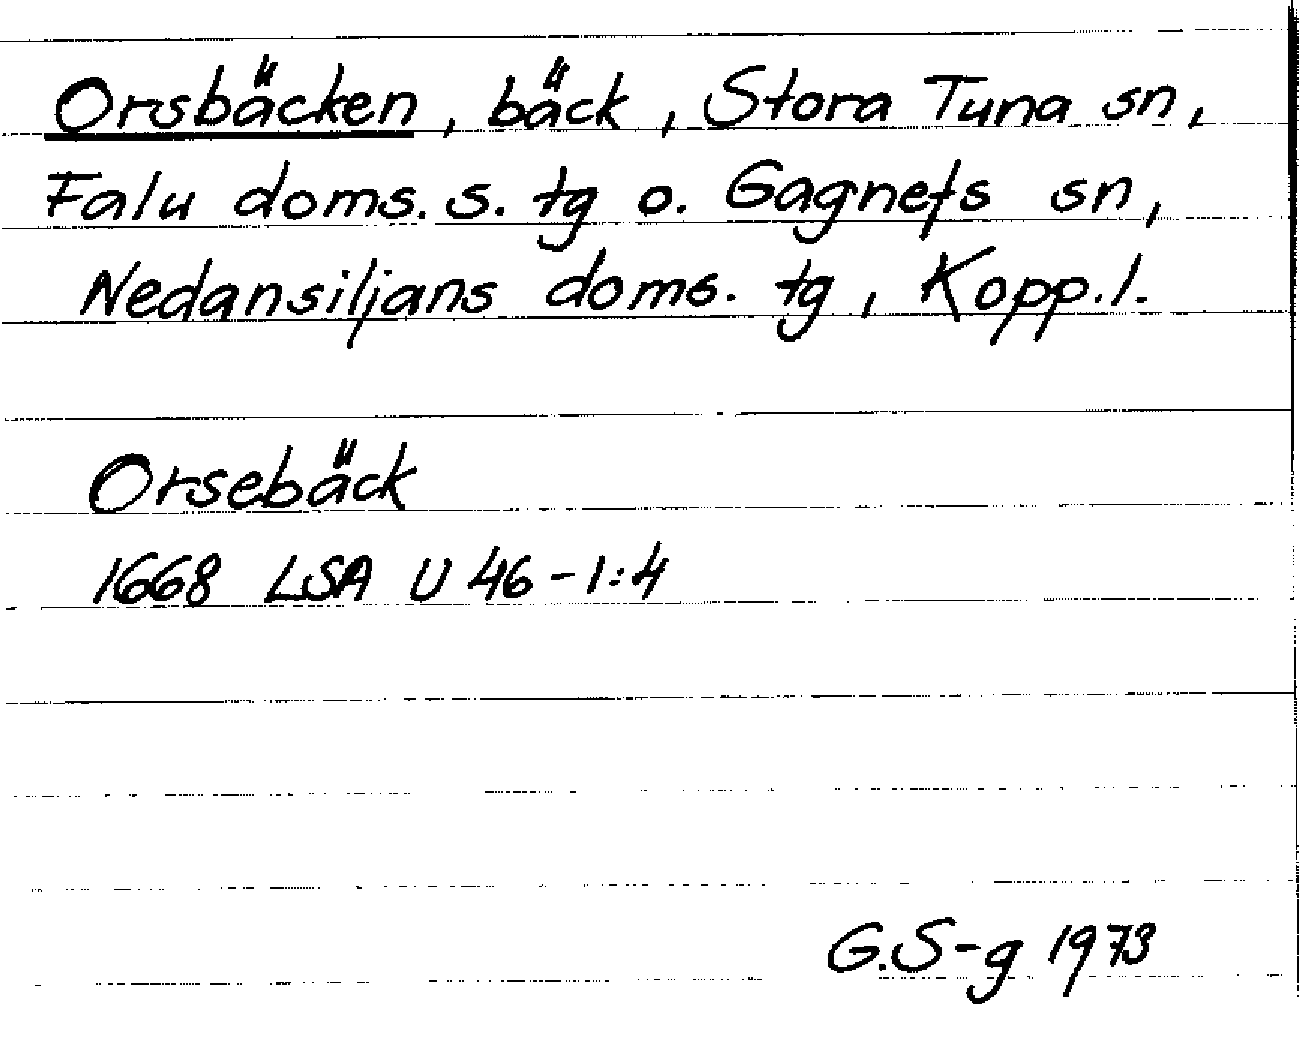 Orsbäcken, bäck, Stora Tuna sn,
Falu doms. s. tg o. Gagnefs sn,
Nedansiljans doms. tg, Kopp. l.
Orsebäck
1668 LSA U 46-1:4
G.S-g 1973